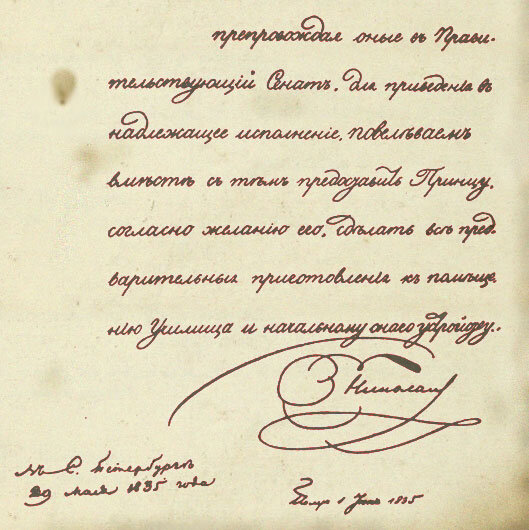 препровождая оные въ Прави-
тельствующій Сенатъ, для приведенія въ
надлежащее исполненіе, повелѣваемъ
вмѣстѣ съ тѣмъ предоставить Принцу,
согласно желанію его, сдѣлать всѣ пред-
варительныя приготовленія къ помѣще-
нію Училища и начальному онаго устройству.
Николай
Въ С. Петербургѣ
29 мая 1835 года
1 Іюня 1835